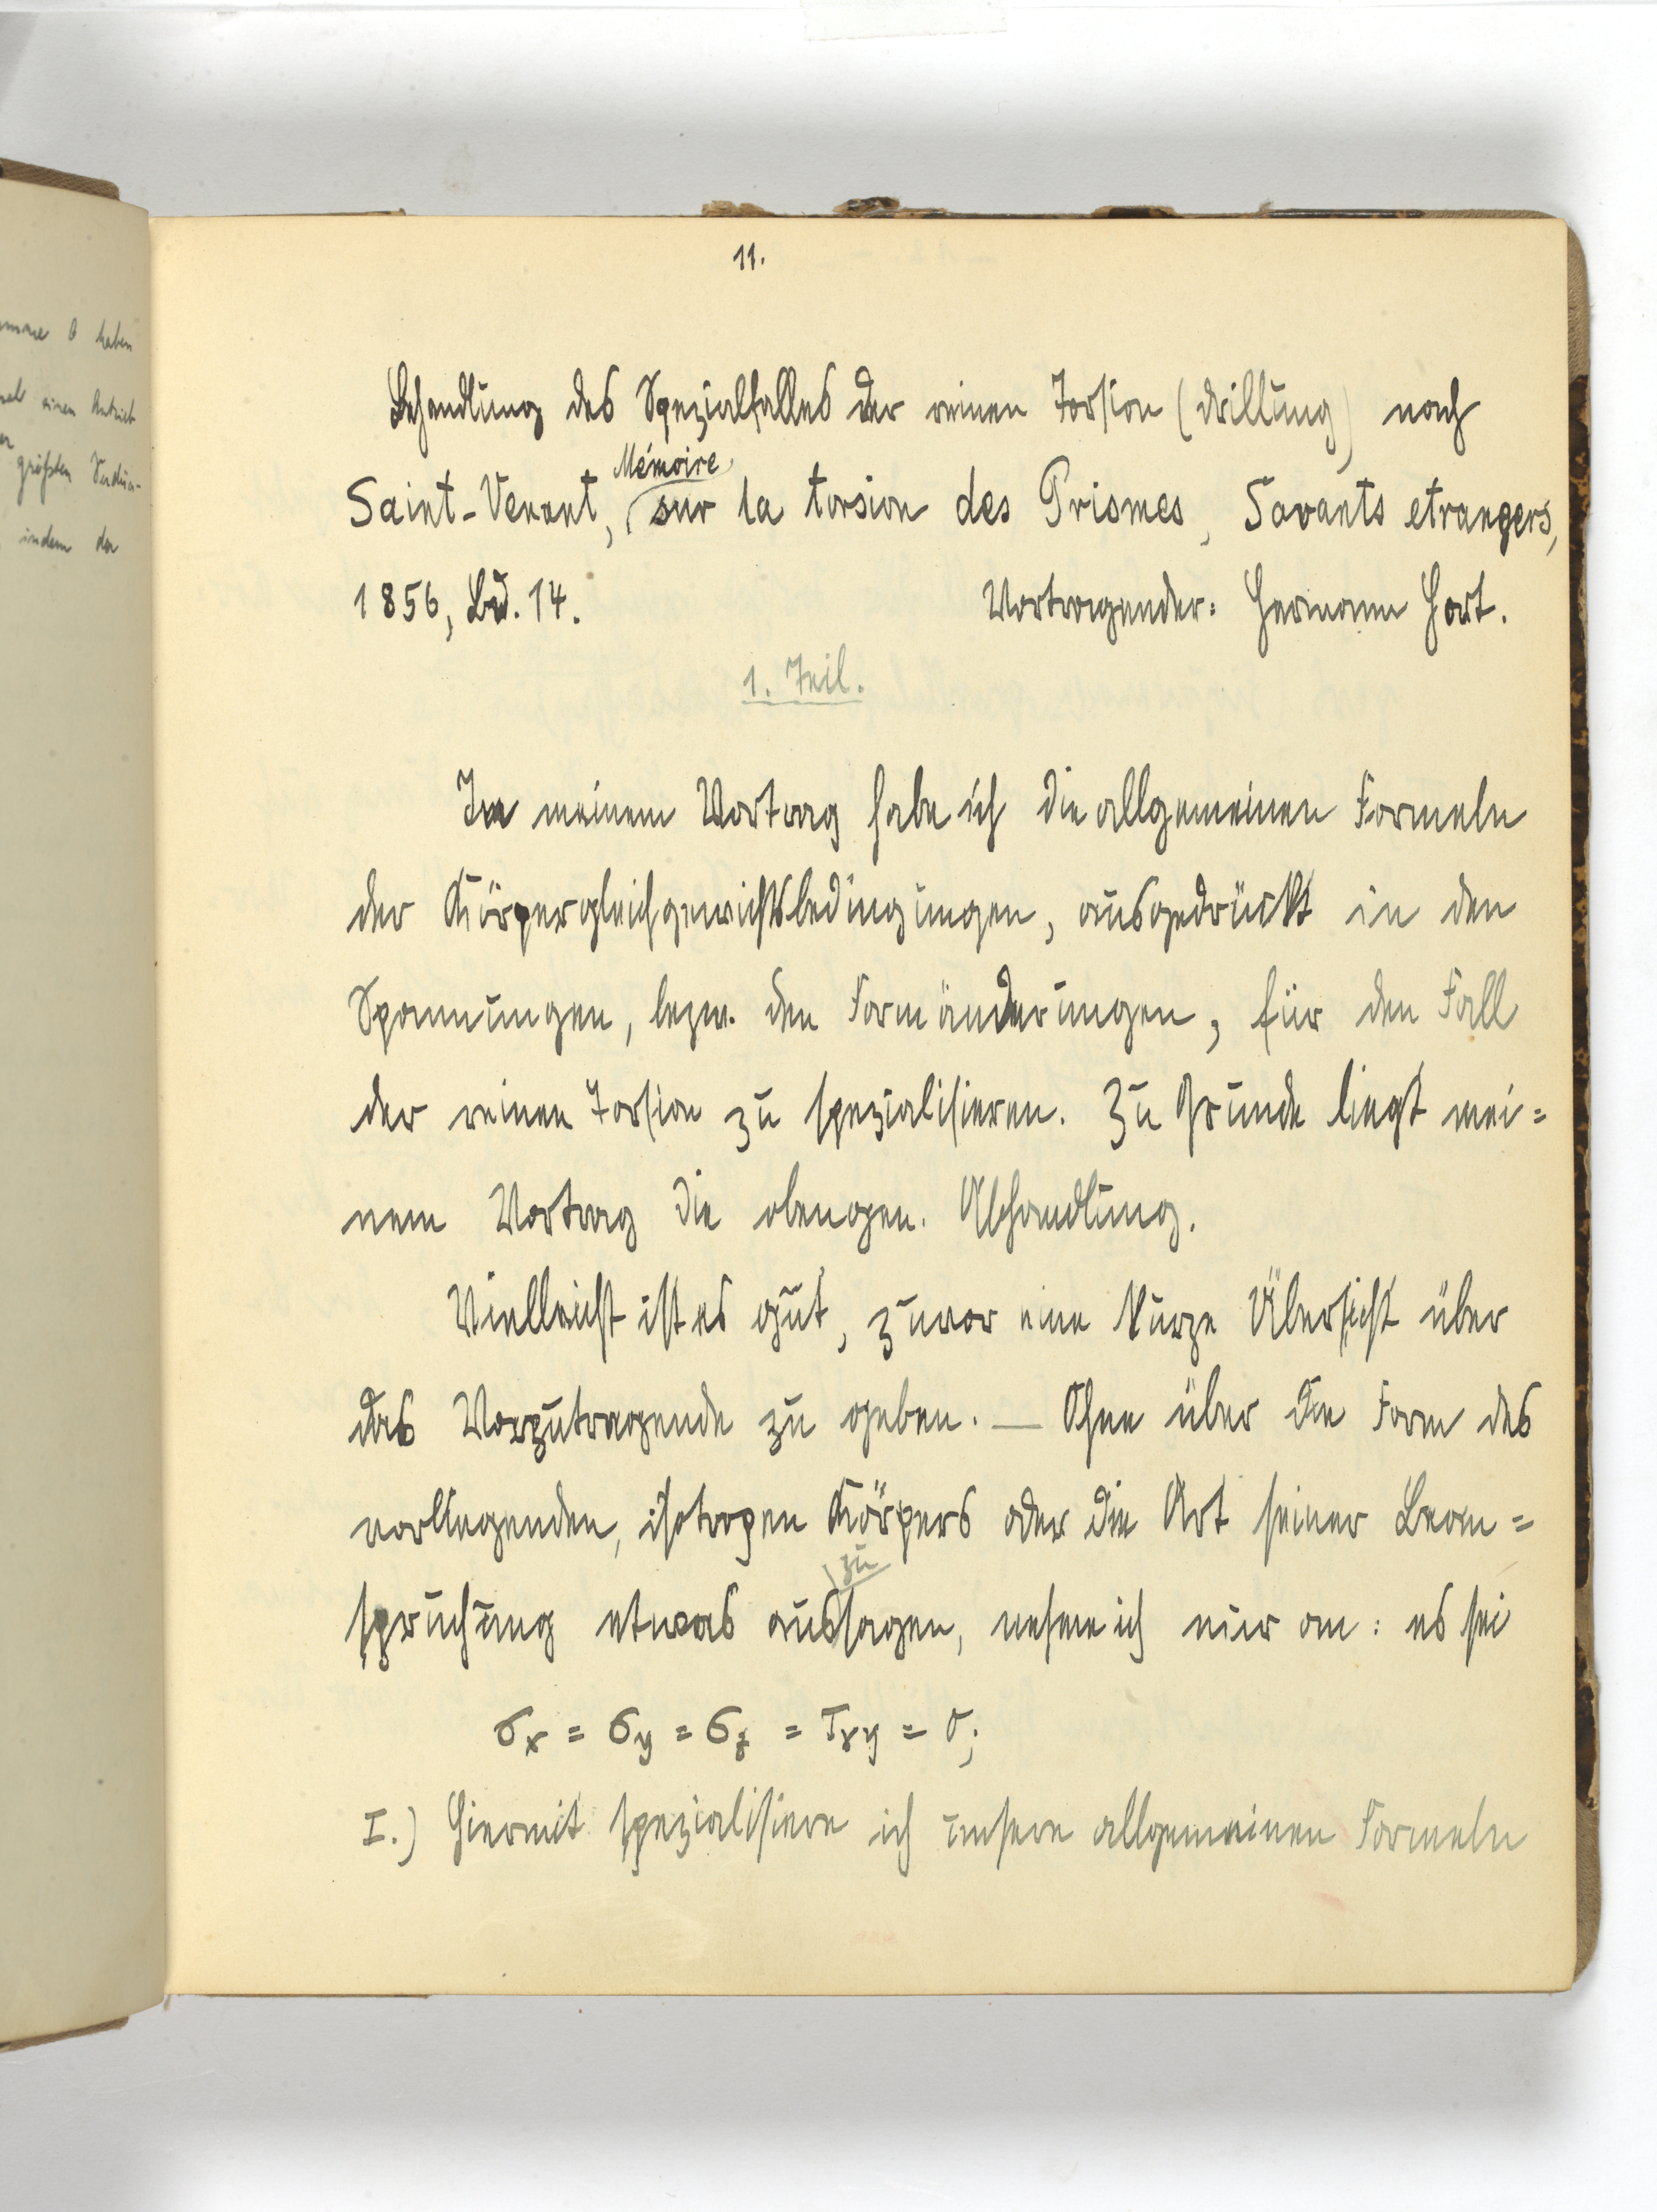 11.
Behandlung des Spezialfalles der reinen Torsion (Drillung) nach
Mémoire
Saint-Venant, sur la torsion des Prismes, Savants etrangers,
1856, Bd. 14. Vortragender: Hermann Hort.
1. Teil.
In meinem Vortrag habe ich die allgemeinen Formeln
der Körpergleichgewichtsbedingungen, ausgedrückt in den
Spannungen, bezw. den Formänderungen, für den Fall
der reinen Torsion zu spezialisieren. Zu Grunde liegt mei=
nem Vortrag die obengen. Abhandlung.
Vielleicht ist es gut, zuvor eine kurze Übersicht über
das Vorzutragende zu geben. — Ohne über die Form des
vorliegenden, isotropen Körpers oder die Art seiner Bean=
zu
spruchung etwas aussagen, nehme ich nur an: es sei
σx = σy = σz = τxy = 0;
I.) Hiermit spezialisiere ich unsere allgemeinen Formeln
haben
einen Antrieb
größten Verdün-
indem der